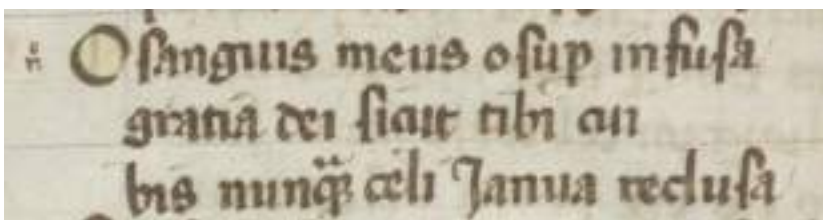 O sanguis meus o suꝑ infusa
gratia dei sicut tibi cui
bis nunq̄ꝫ celi Janua reclusa